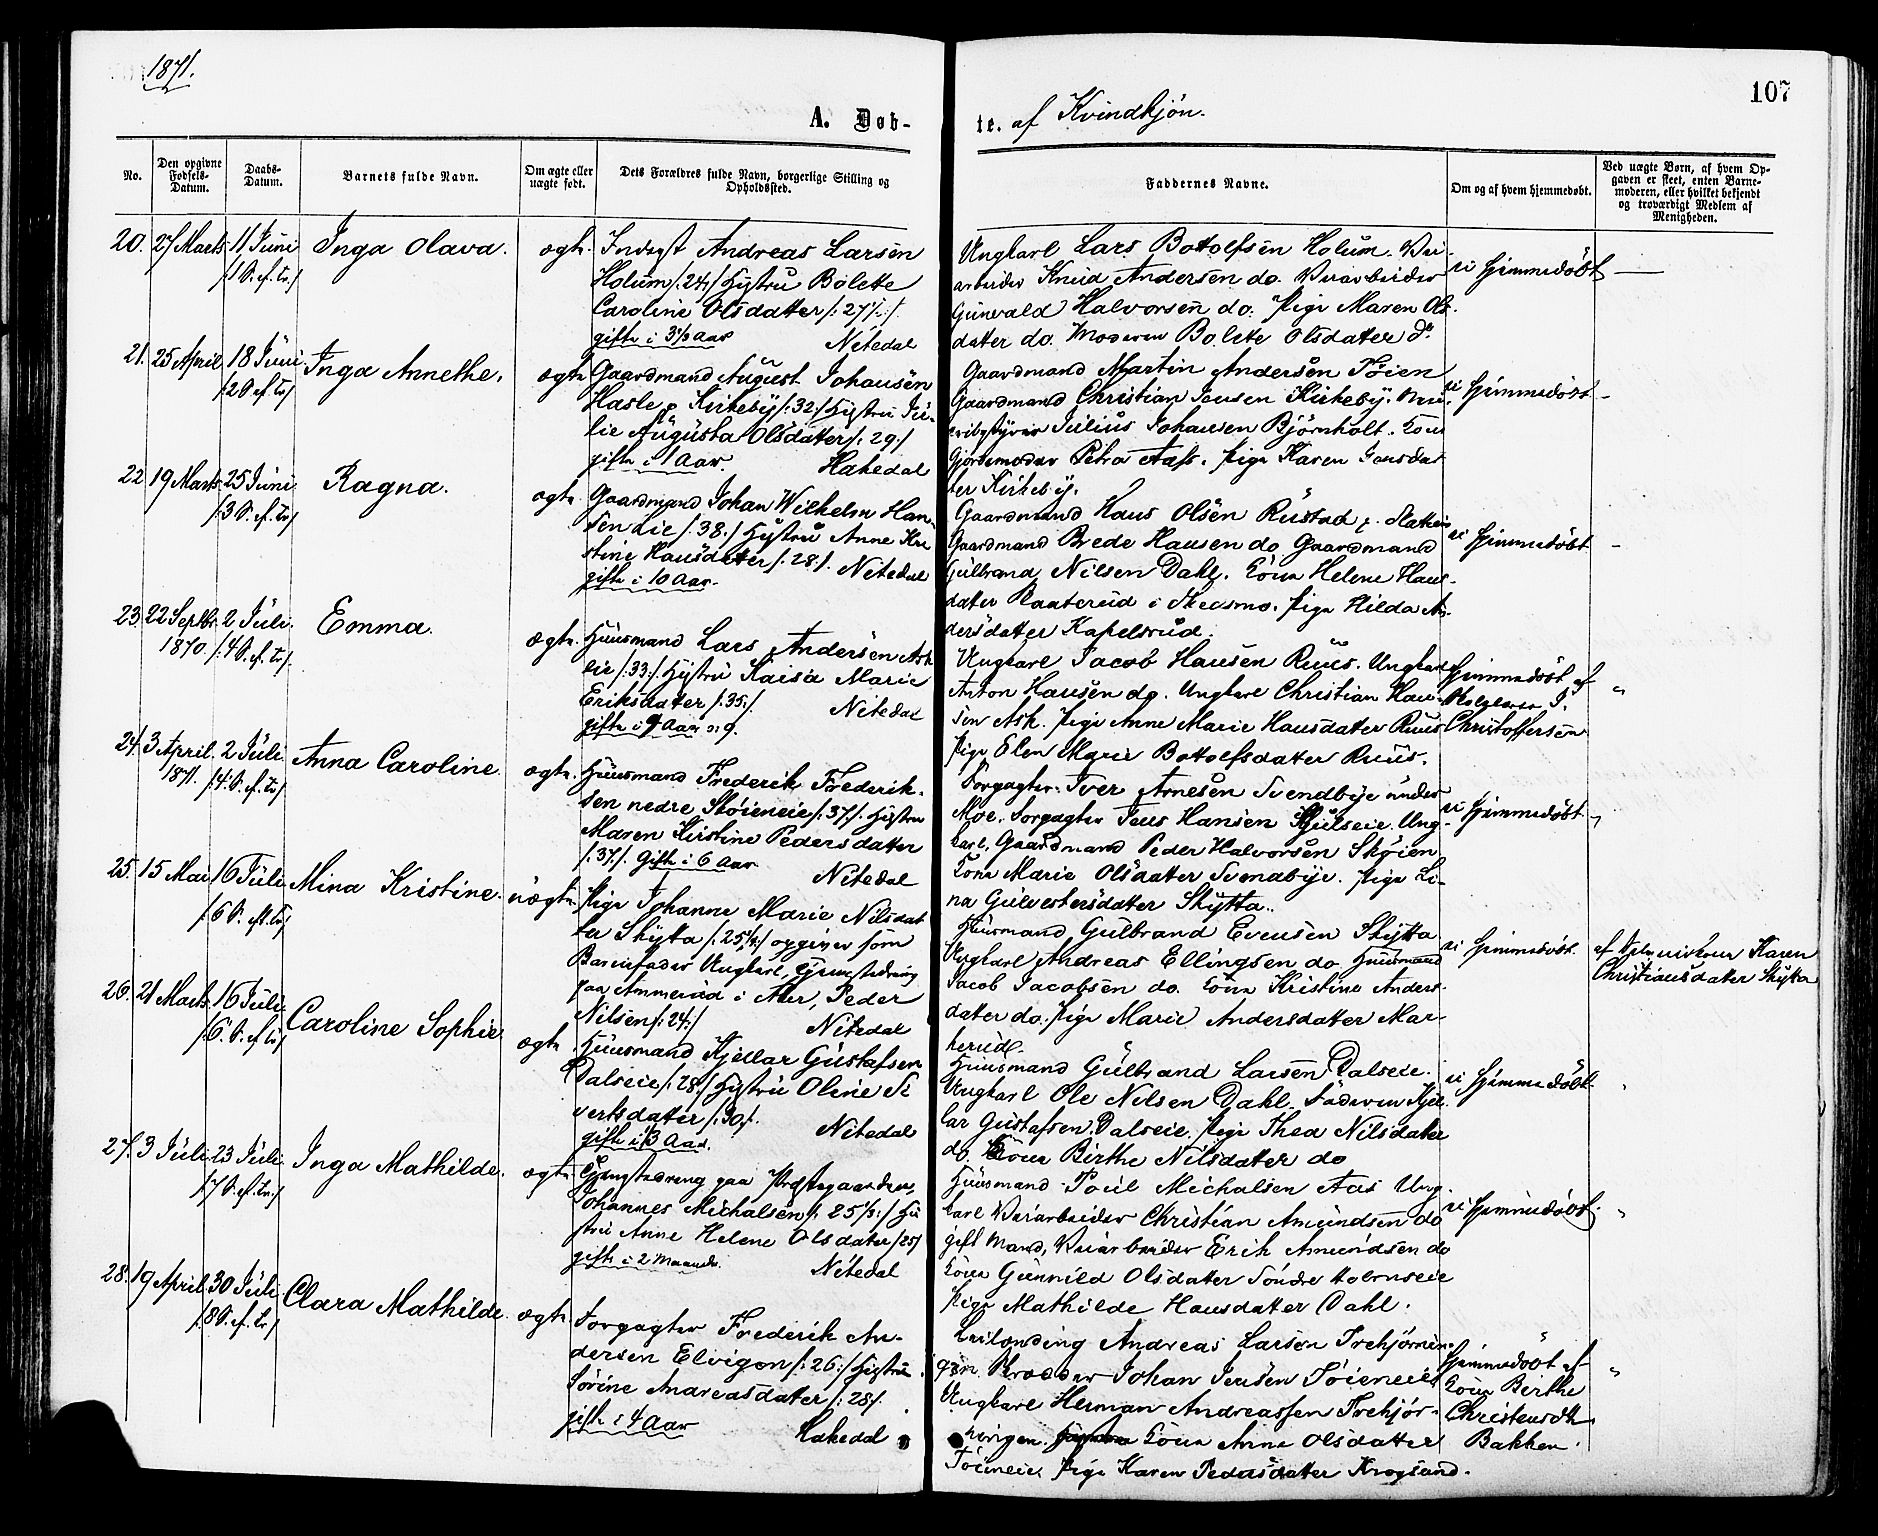 1871.
107
A. Døb-
te. af Kvindkjön.
No.
Den opgivne Fødsels-Datum.
Daabs-Datum.
Barnets fulde Navn.
Om ægte eller uægte født.
Dets Forældres fulde Navn, borgerlige Stilling og Opholdssted.
Faddernes Navne.
Om og af hvem hjemmedøbt.
Ved uægte Børn, af hvem Op-
gaven er skeet, enten Barne-
moderen, eller hvilket bekjendt
og troværdigt Medlem af
Menigheden.
20. 27 Marts 11 Juni Inga Olava. ægte. Inderst Andreas Larsen
/:1 S. ef. tr:/ Holum /:24:/ Hustru Bolette
Caroline Olsdatter /:27½:/.
gifte i 3½ Aar Nitedal
Ungkarl Lars Bottolfsen Holum.
arbeider Knud Andersen do. Veiarbeider
Gunvald Halvorsen do. Pige Maren Ols-
datter do. Moderen Bolette Olsdatter do
ei hjemmedöbt —
21. 25 April 18 Juni Inga Annethe. ægte Gaardmand August Johansen
/:2 S. ef. tr:/ Hasle p. Kirkeby /:32:/ Hustru Ju-
lie Augusta Olsdatter /:29:/
gifte i 1 Aar. Hakedal
Gaardmand Martin Andersen Töien
Gaardmand Christian Jensen Kirkeby.
Julius Johansen Björnholt. Kone
Gjordemoder Petra Aas. Pige Karen
ter Kirkeby.
ei hjemmedöbt –
22 19 Marts 25 Juni Ragna. ægte. Gaardmand Johan Wilhelm Han-
/:3 S. ef. tr:/ sen Lie /:38:/ Hustru Anne Kri
stine Hansdatter /:28:/. Nitedal
gifte i 10 Aar.
Gaardmand Hans Olsen Rustad p.
Gaardmand Brede Hansen do. Gaardmand
Gulbrand Nilsen Dahl. Kone Helene Hans-
datter i Skedsmo. Pige Hilda An-
dersdatter Kapelsrud.
ei hjemmedöbt –
23. 22 Septbr. 2 Juli Emma. ægte. Huusmand Lars Andersen Ask
1870. /:4 S. ef. tr:/ eie /:33:/ Hustru Kaisa Marie
Eriksdatter /:35:/. Nitedal
gifte i 9 Aar
Ungkarl Jacob Hansen Ruus. Ungkarl
Anton Hansen do. Ungkarl Christian Han-
sen Ask. Pige Anne Marie Hansdatter Ruus
Pige Elen Marie Bottolfsdatter Ruus.
Hjemmedöbt af
Christoffersen "
24. 3 April. 2 Juli. Anna Caroline. ægte. Huusmand Frederik Frederik-
1871. /:4 S. ef. tr:/ sen nedre Skøieneie /:37:/. Hustru
Maren Kirstine Pedersdatter
/:37:/. Gifte i 6 Aar Nitedal
Forpagter Iver Arnesen Svendbye under
Moe. Forpagter Jens Hansen. Ung-
karl, Gaardmand Peder Halvorsen Skøien
Kone Marie Olsdatter Svendbye. Pige Li-
na Gulvestersdatter Skytta.
ei hjemmedöbt. "
25. 15 Mai 16 Juli Mina Kristine. uægte. Pige Johanne Marie Nilsdat
/:6 S. ef. tr:/ ter Skytta /:25¼:/ opgiver som
Barnefader Ungkarl, Tjenestedreng
paa Ammerud i Aker, Peder
Nilsen /:24:/ Nitedal
Huusmand Gulbrand Evensen Skytta
Ungkarl Andreas Ellingsen do. Huusmand
Jacob Jacobsen do. Kone Kristine Anders-
datter do. Pige Marie Andersdatter Mar-
kerud.
ei hjemmedöbt.
af Karen
Christiansdatter Skytta
26. 21 Marts 16 Juli Caroline Sophie. ægte. Huusmand Kjellar Gustafsen
/:6. S. ef tr:/ Dalseie /:28:/ Hustru Oline Si
vertsdatter /:30:/. Nitedal
gifte i 3 Aar.
Huusmand Gulbrand Larsen Dalseie.
Ungkarl Ole Nilsen Dahl. Faderen Kjel-
lar Gustafsen Dalseie. Pige Thea Nilsdatter
do. Kone Birthe Nilsdatter do
ei hjemmedöbt "
27. 3 Juli. 23 Juli Inga Mathilde. ægte. Tjenestedreng paa Præstegaarden,
/:7 S. ef. tr:/ Johannes Michalsen /:25½:/ Hu
stru Anne Helene Olsdatter /:25:/
gifte i 2 Maaneder. Nitedal
Huusmand Poul Michalsen Aas Ung
karl Veiarbeider Christian Amundsen do
gift Mand, Veiarbeider Erik Amundsen do
Kone Gunnild Olsdatter Söndre Holumseie
Pige Mathilde Hansdatter Dahl.
ei hjemmedöbt "
28. 19 April. 30 Juli Clara Mathilde. ægte. Forpagter Frederik An-
/:8 S. ef. tr:/ dersen Elvigen /:26:/ Hustru
Sørine Andreasdatter /:28:/.
gifte i 4 Aar Hakedal
Leilænding Andreas Larsen Trehjörnin-
gen. Johan Jensen Töieneiet
Ungkarl Herman Andreassen Trehjör-
ningen. Kone Anne Olsdatter
Töieneie Pige Karen Pedersdatter Krogsund.
Hjemmedöbt af
Kone Birthe
Christensdtr
Bakken. "